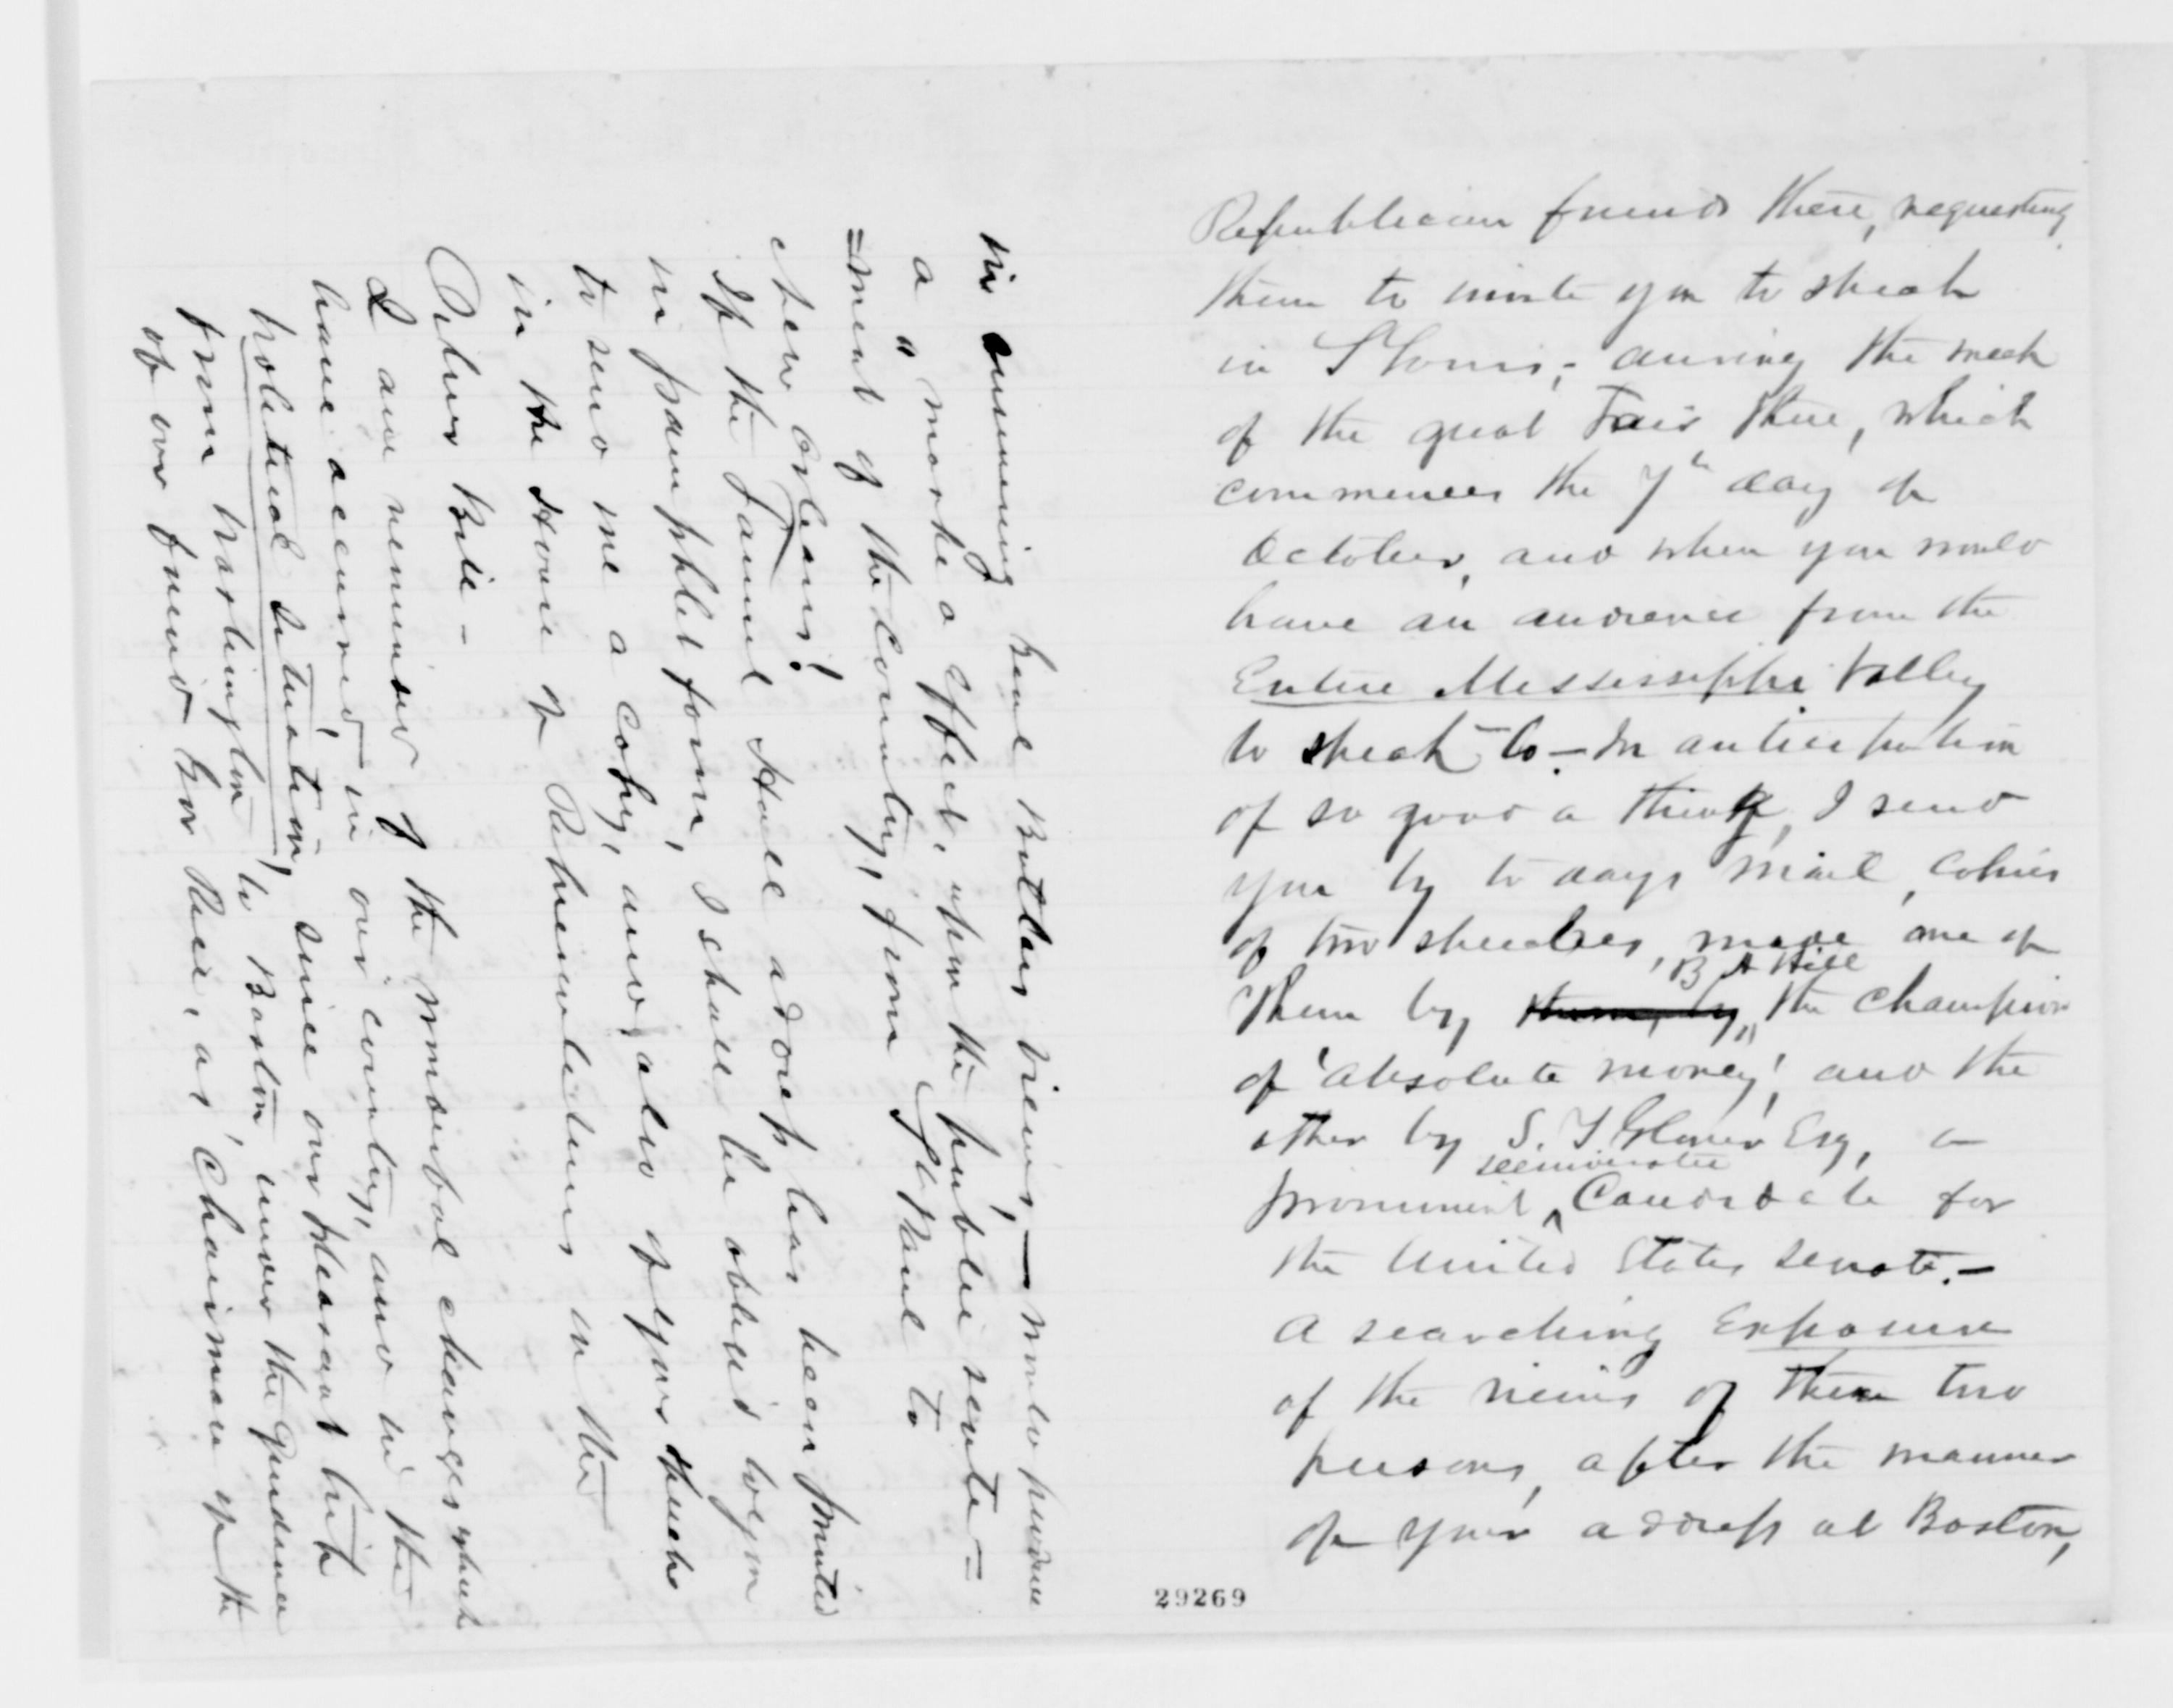 Republican friends there, requesting
them to invite you to speak
in St Louis, - during the week
of the great Fair there, which
commences the 7th day of
October, and when you would
have an audience from the
Entire Mississippi Valley
to speak to. - In anticipation
of so good a thing, I send
you by to days mail, copies
of two speeches, made one of
B A Hill
them by them, by, the champion
of 'absolute money', and the
other by S. T Glover Esq, a
prominent Candidate for
the United States Senate. -
A searching Exposure
of the views of these two
persons, after the manner
of your address at Boston,
29269
in summing Genl Butlers views, - would produce
a "marked effect, upon the public sente=
=ment of the Country, from St Paul to
New Orleans!
If the Faneuil Hall address has been printed
in pamphlet form, I shall be obliged to you
to send me a copy, and, also of your speech
in the House of Representatives on the
Silver Bill -
I am reminded of the wonderful changes which
have occurred, in our country, and in the
political situation, since our pleasant trip
from Washington, to Boston under the guidance
of our friend Gov Rice, as Chairman of the